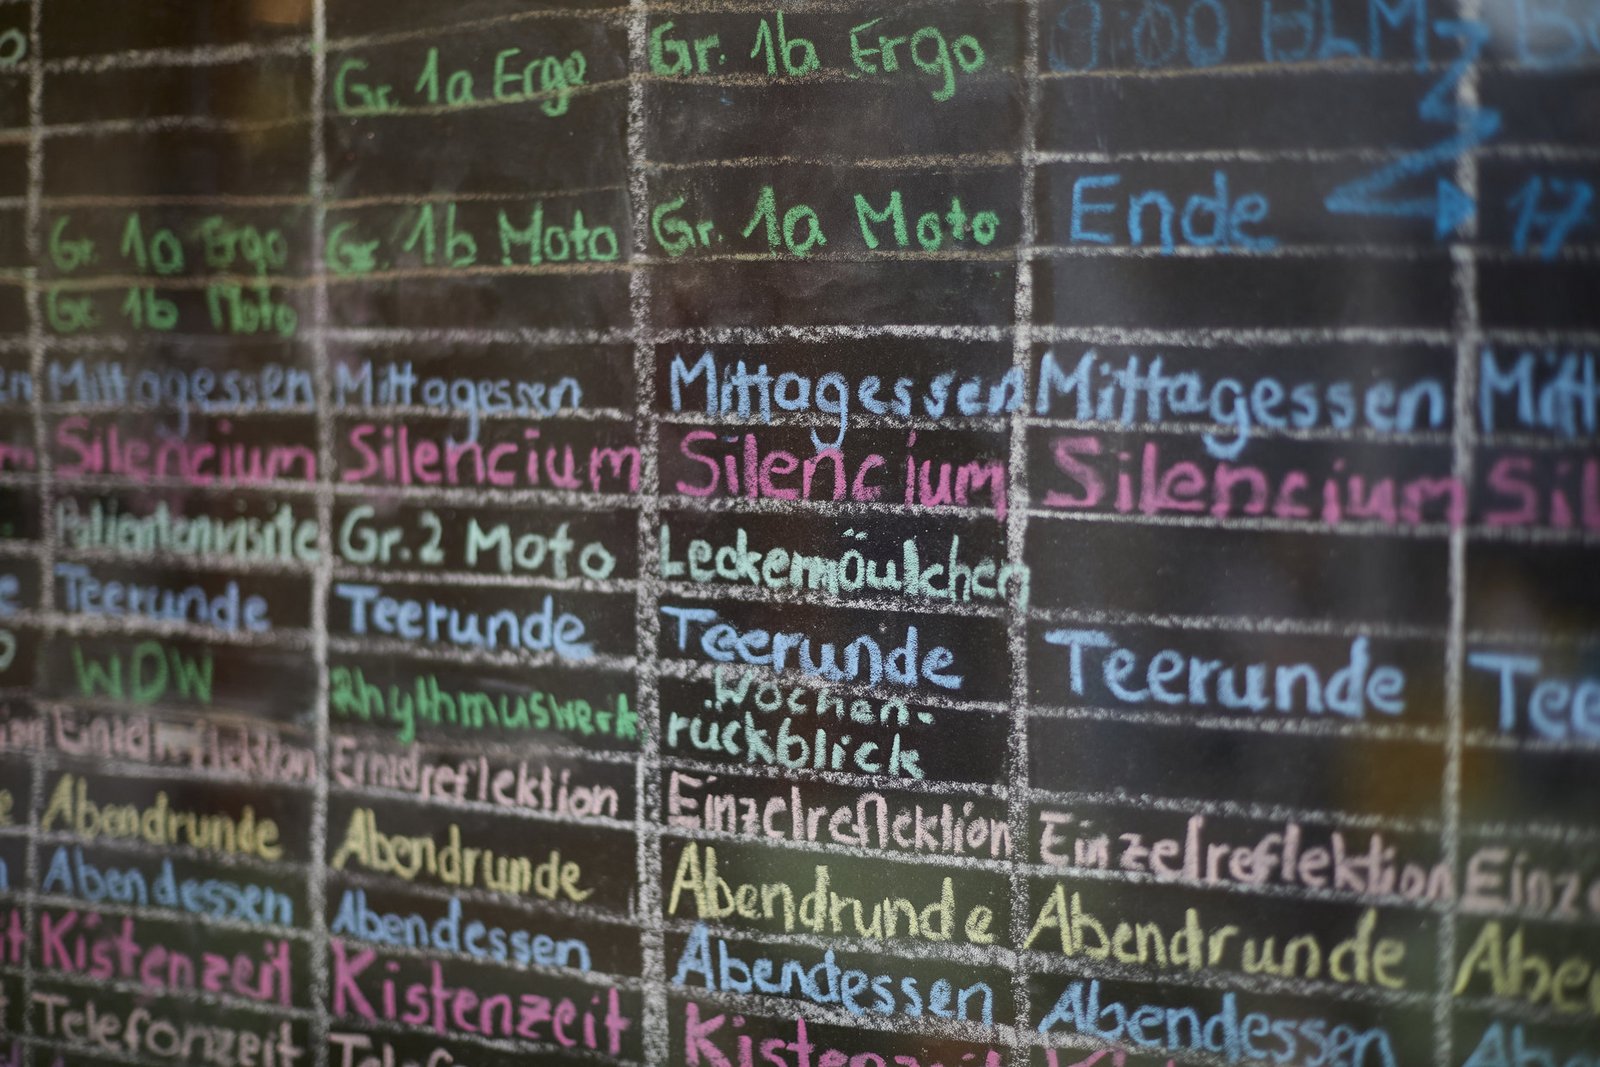 Gr. 1a Ergo
Gr. 1b Ergo
Gr. 1a Ergo
Gr. 1b Moto
Gr. 1a Moto
Ende
17
Gr. 1b Moto
Mittagessen
Mittagessen
Mittagessen
Mittagessen
Mitt
Silencium
Silencium
Silencium
Silencium
Sil
Patientenvisite
Gr. 2 Moto
Leckermäulchen
Teerunde
Teerunde
Teerunde
Teerunde
Tee
WDW
Rhythmuswerk
Wochen-
rückblick
Einzelreflektion
Einzelreflektion
Einzelreflektion
Einzelreflektion
Einze
Abendrunde
Abendrunde
Abendrunde
Abendrunde
Abe
Abendessen
Abendessen
Abendessen
Abendessen
Ab
Kistenzeit
Kistenzeit
Kistenzeit
Telefonzeit
Telef